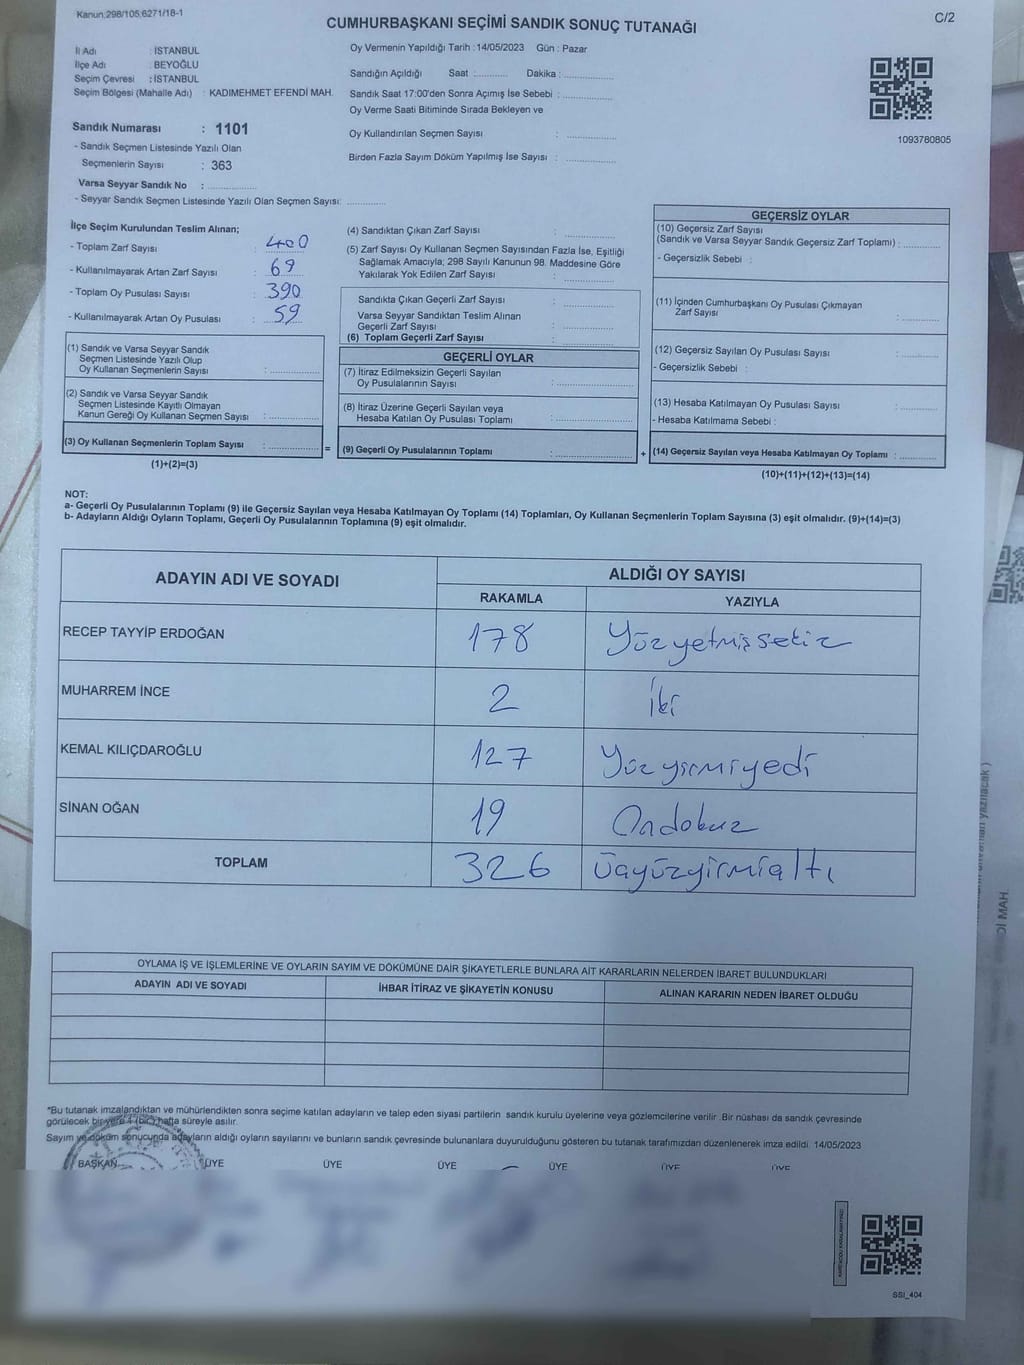 Kanun:298/105,6271/18-1
CUMHURBAŞKANI SEÇİMİ SANDIK SONUÇ TUTANAĞI
C/2
İl Adı : İSTANBUL
İlçe Adı : BEYOĞLU
Seçim Çevresi : İSTANBUL
Seçim Bölgesi (Mahalle Adı) : KADIMEHMET EFENDİ MAH.
Oy Vermenin Yapıldığı Tarih : 14/05/2023 Gün : Pazar
Sandığın Açıldığı Saat ............ Dakika : ............
Sandık Saat 17:00'den Sonra Açımış İse Sebebi : ............
Oy Verme Saati Bitiminde Sırada Bekleyen ve
Oy Kullandırılan Seçmen Sayısı : ............
Birden Fazla Sayım Döküm Yapılmış İse Sayısı : ............
1093780805
Sandık Numarası : 1101
- Sandık Seçmen Listesinde Yazılı Olan
Seçmenlerin Sayısı : 363
Varsa Seyyar Sandık No : ............
- Seyyar Sandık Seçmen Listesinde Yazılı Olan Seçmen Sayısı: ............
İlçe Seçim Kurulundan Teslim Alınan;
- Toplam Zarf Sayısı : 400
- Kullanılmayarak Artan Zarf Sayısı : 69
- Toplam Oy Pusulası Sayısı : 390
- Kullanılmayarak Artan Oy Pusulası : 59
(1) Sandık ve Varsa Seyyar Sandık
Seçmen Listesinde Yazılı Olup
Oy Kullanan Seçmenlerin Sayısı : ............
(2) Sandık ve Varsa Seyyar Sandık
Seçmen Listesinde Kayıtlı Olmayan
Kanun Gereği Oy Kullanan Seçmen Sayısı : ............
(3) Oy Kullanan Seçmenlerin Toplam Sayısı : ............
(1)+(2)=(3)
=
(4) Sandıktan Çıkan Zarf Sayısı : ............
(5) Zarf Sayısı Oy Kullanan Seçmen Sayısından Fazla İse, Eşitliği
Sağlamak Amacıyla; 298 Sayılı Kanunun 98. Maddesine Göre
Yakılarak Yok Edilen Zarf Sayısı : ............
Sandıkta Çıkan Geçerli Zarf Sayısı : ............
Varsa Seyyar Sandıktan Teslim Alınan
Geçerli Zarf Sayısı : ............
(6) Toplam Geçerli Zarf Sayısı : ............
GEÇERLİ OYLAR
(7) İtiraz Edilmeksizin Geçerli Sayılan
Oy Pusulalarının Sayısı : ............
(8) İtiraz Üzerine Geçerli Sayılan veya
Hesaba Katılan Oy Pusulası Toplamı : ............
(9) Geçerli Oy Pusulalarının Toplamı : ............
+
GEÇERSİZ OYLAR
(10) Geçersiz Zarf Sayısı
(Sandık ve Varsa Seyyar Sandık Geçersiz Zarf Toplamı) : ............
- Geçersizlik Sebebi :
(11) İçinden Cumhurbaşkanı Oy Pusulası Çıkmayan
Zarf Sayısı : ............
(12) Geçersiz Sayılan Oy Pusulası Sayısı : ............
- Geçersizlik Sebebi :
(13) Hesaba Katılmayan Oy Pusulası Sayısı : ............
- Hesaba Katılmama Sebebi :
(14) Geçersiz Sayılan veya Hesaba Katılmayan Oy Toplamı : ............
(10)+(11)+(12)+(13)=(14)
NOT:
a- Geçerli Oy Pusulalarının Toplamı (9) ile Geçersiz Sayılan veya Hesaba Katılmayan Oy Toplamı (14) Toplamları, Oy Kullanan Seçmenlerin Toplam Sayısına (3) eşit olmalıdır. (9)+(14)=(3)
b- Adayların Aldığı Oyların Toplamı, Geçerli Oy Pusulalarının Toplamına (9) eşit olmalıdır.
ADAYIN ADI VE SOYADI ALDIĞI OY SAYISI
RAKAMLA YAZIYLA
RECEP TAYYİP ERDOĞAN 178 Yüzyetmişsekiz
MUHARREM İNCE 2 İki
KEMAL KILIÇDAROĞLU 127 Yüzyirmiyedi
SİNAN OĞAN 19 Ondokuz
TOPLAM 326 üçyüzyirmialtı
OYLAMA İŞ VE İŞLEMLERİNE VE OYLARIN SAYIM VE DÖKÜMÜNE DAİR ŞİKAYETLERLE BUNLARA AİT KARARLARIN NELERDEN İBARET BULUNDUKLARI
ADAYIN ADI VE SOYADI İHBAR İTİRAZ VE ŞİKAYETİN KONUSU ALINAN KARARIN NEDEN İBARET OLDUĞU
*Bu tutanak imzalandıktan ve mühürlendikten sonra seçime katılan adayların ve talep eden siyasi partilerin sandık kurulu üyelerine veya gözlemcilerine verilir .Bir nüshası da sandık çevresinde
görülecek bir yere 1 (bir) hafta süreyle asılır.
Sayım ve döküm sonucunda adayların aldığı oyların sayılarını ve bunların sandık çevresinde bulunanlara duyurulduğunu gösteren bu tutanak tarafımızdan düzenlenerek imza edildi. 14/05/2023
BAŞKAN ÜYE ÜYE ÜYE ÜYE ÜYE ÜYE
SSI_404
Dİ MAH.